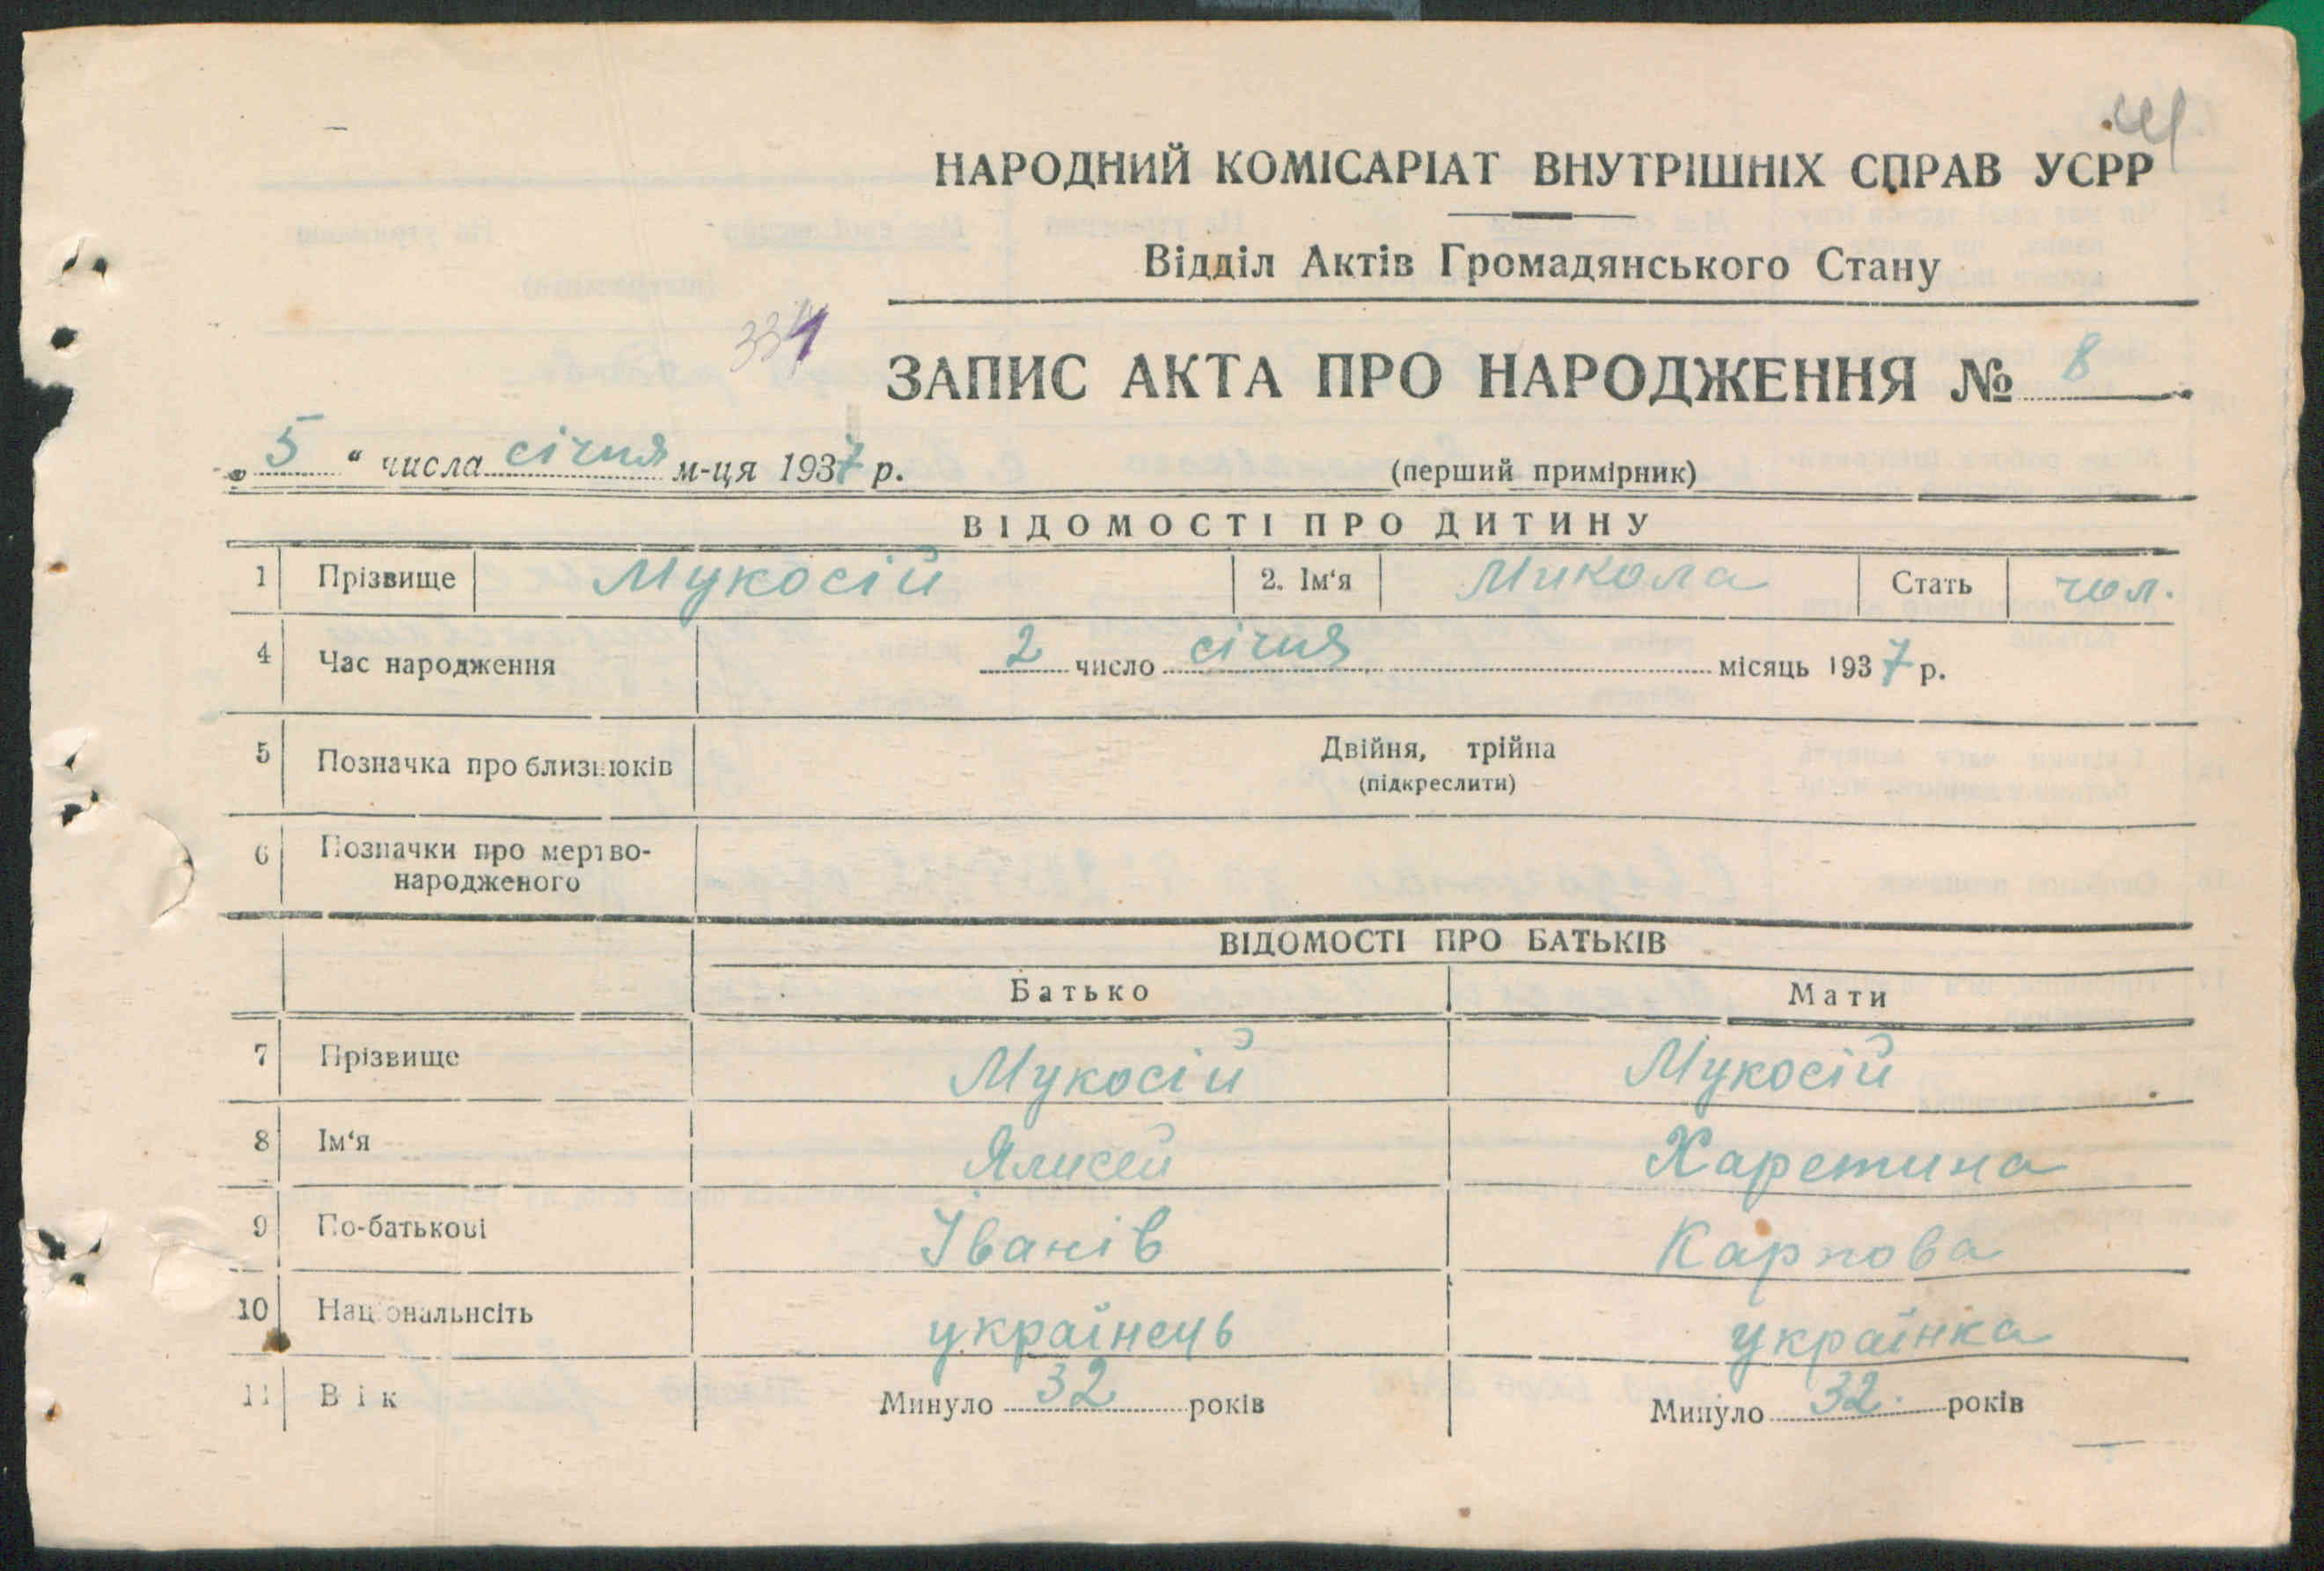 41
НАРОДНИЙ КОМІСАРІАТ ВНУТРІШНІХ СПРАВ УСРР
Відділ Актів Громадянського Стану
334
ЗАПИС АКТА ПРО НАРОДЖЕННЯ № 8
„5“ числа січня м-ця 1937 р. (перший примірник)
ВІДОМОСТІ ПРО ДИТИНУ
1 Прізвище Мукосій 2. Ім‘я Микола Стать чол.
4 Час народження 2 число січня місяць 1937 р.
5 Позначка про близнюків Двійня, трійна
(підкреслити)
6 Позначки про мертво-
народженого
ВІДОМОСТІ ПРО БАТЬКІВ
Батько Мати
7 Прізвище Мукосій Мукосій
8 Ім‘я Ялисей Харетина
9 По-батькові Іванів Карпова
10 Національнсіть українець українка
11 Вік Минуло 32 років Минуло 32. років